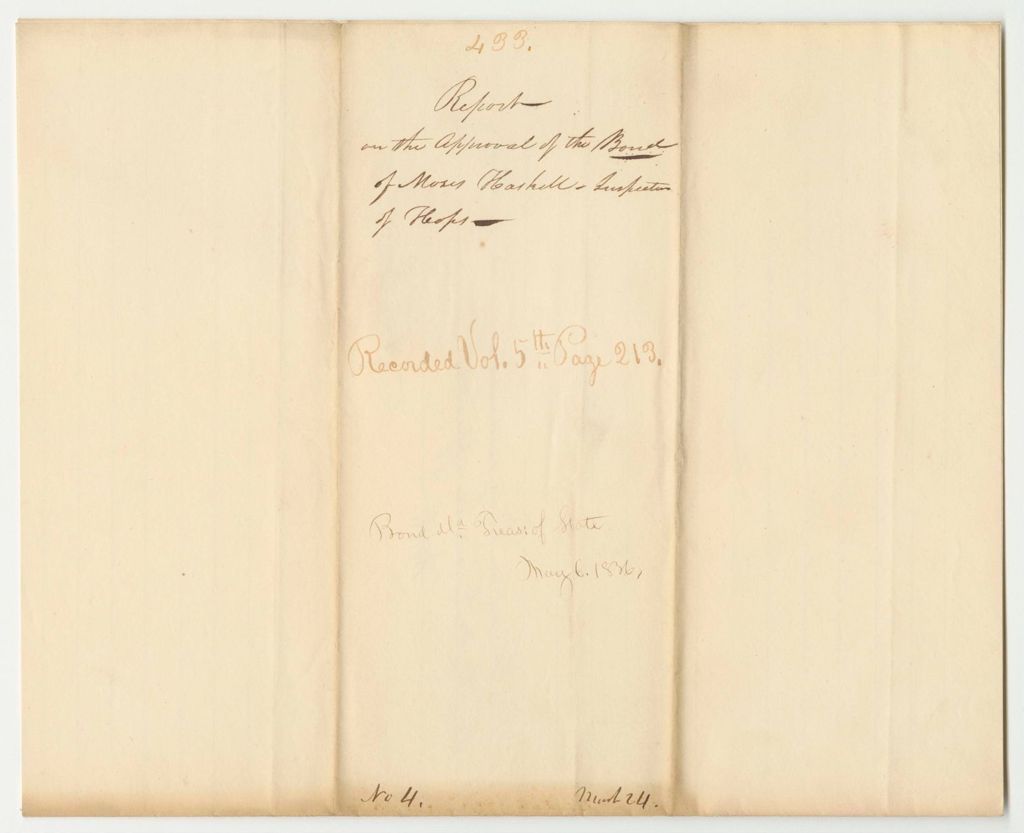 433.
Report
on the Approval of the Bond
of Moses Haskell - Inspector
of Hops
Recorded Vol. 5th Page 213.
Bond Treas: of State
May 6. 1836,
No 4. March 24.